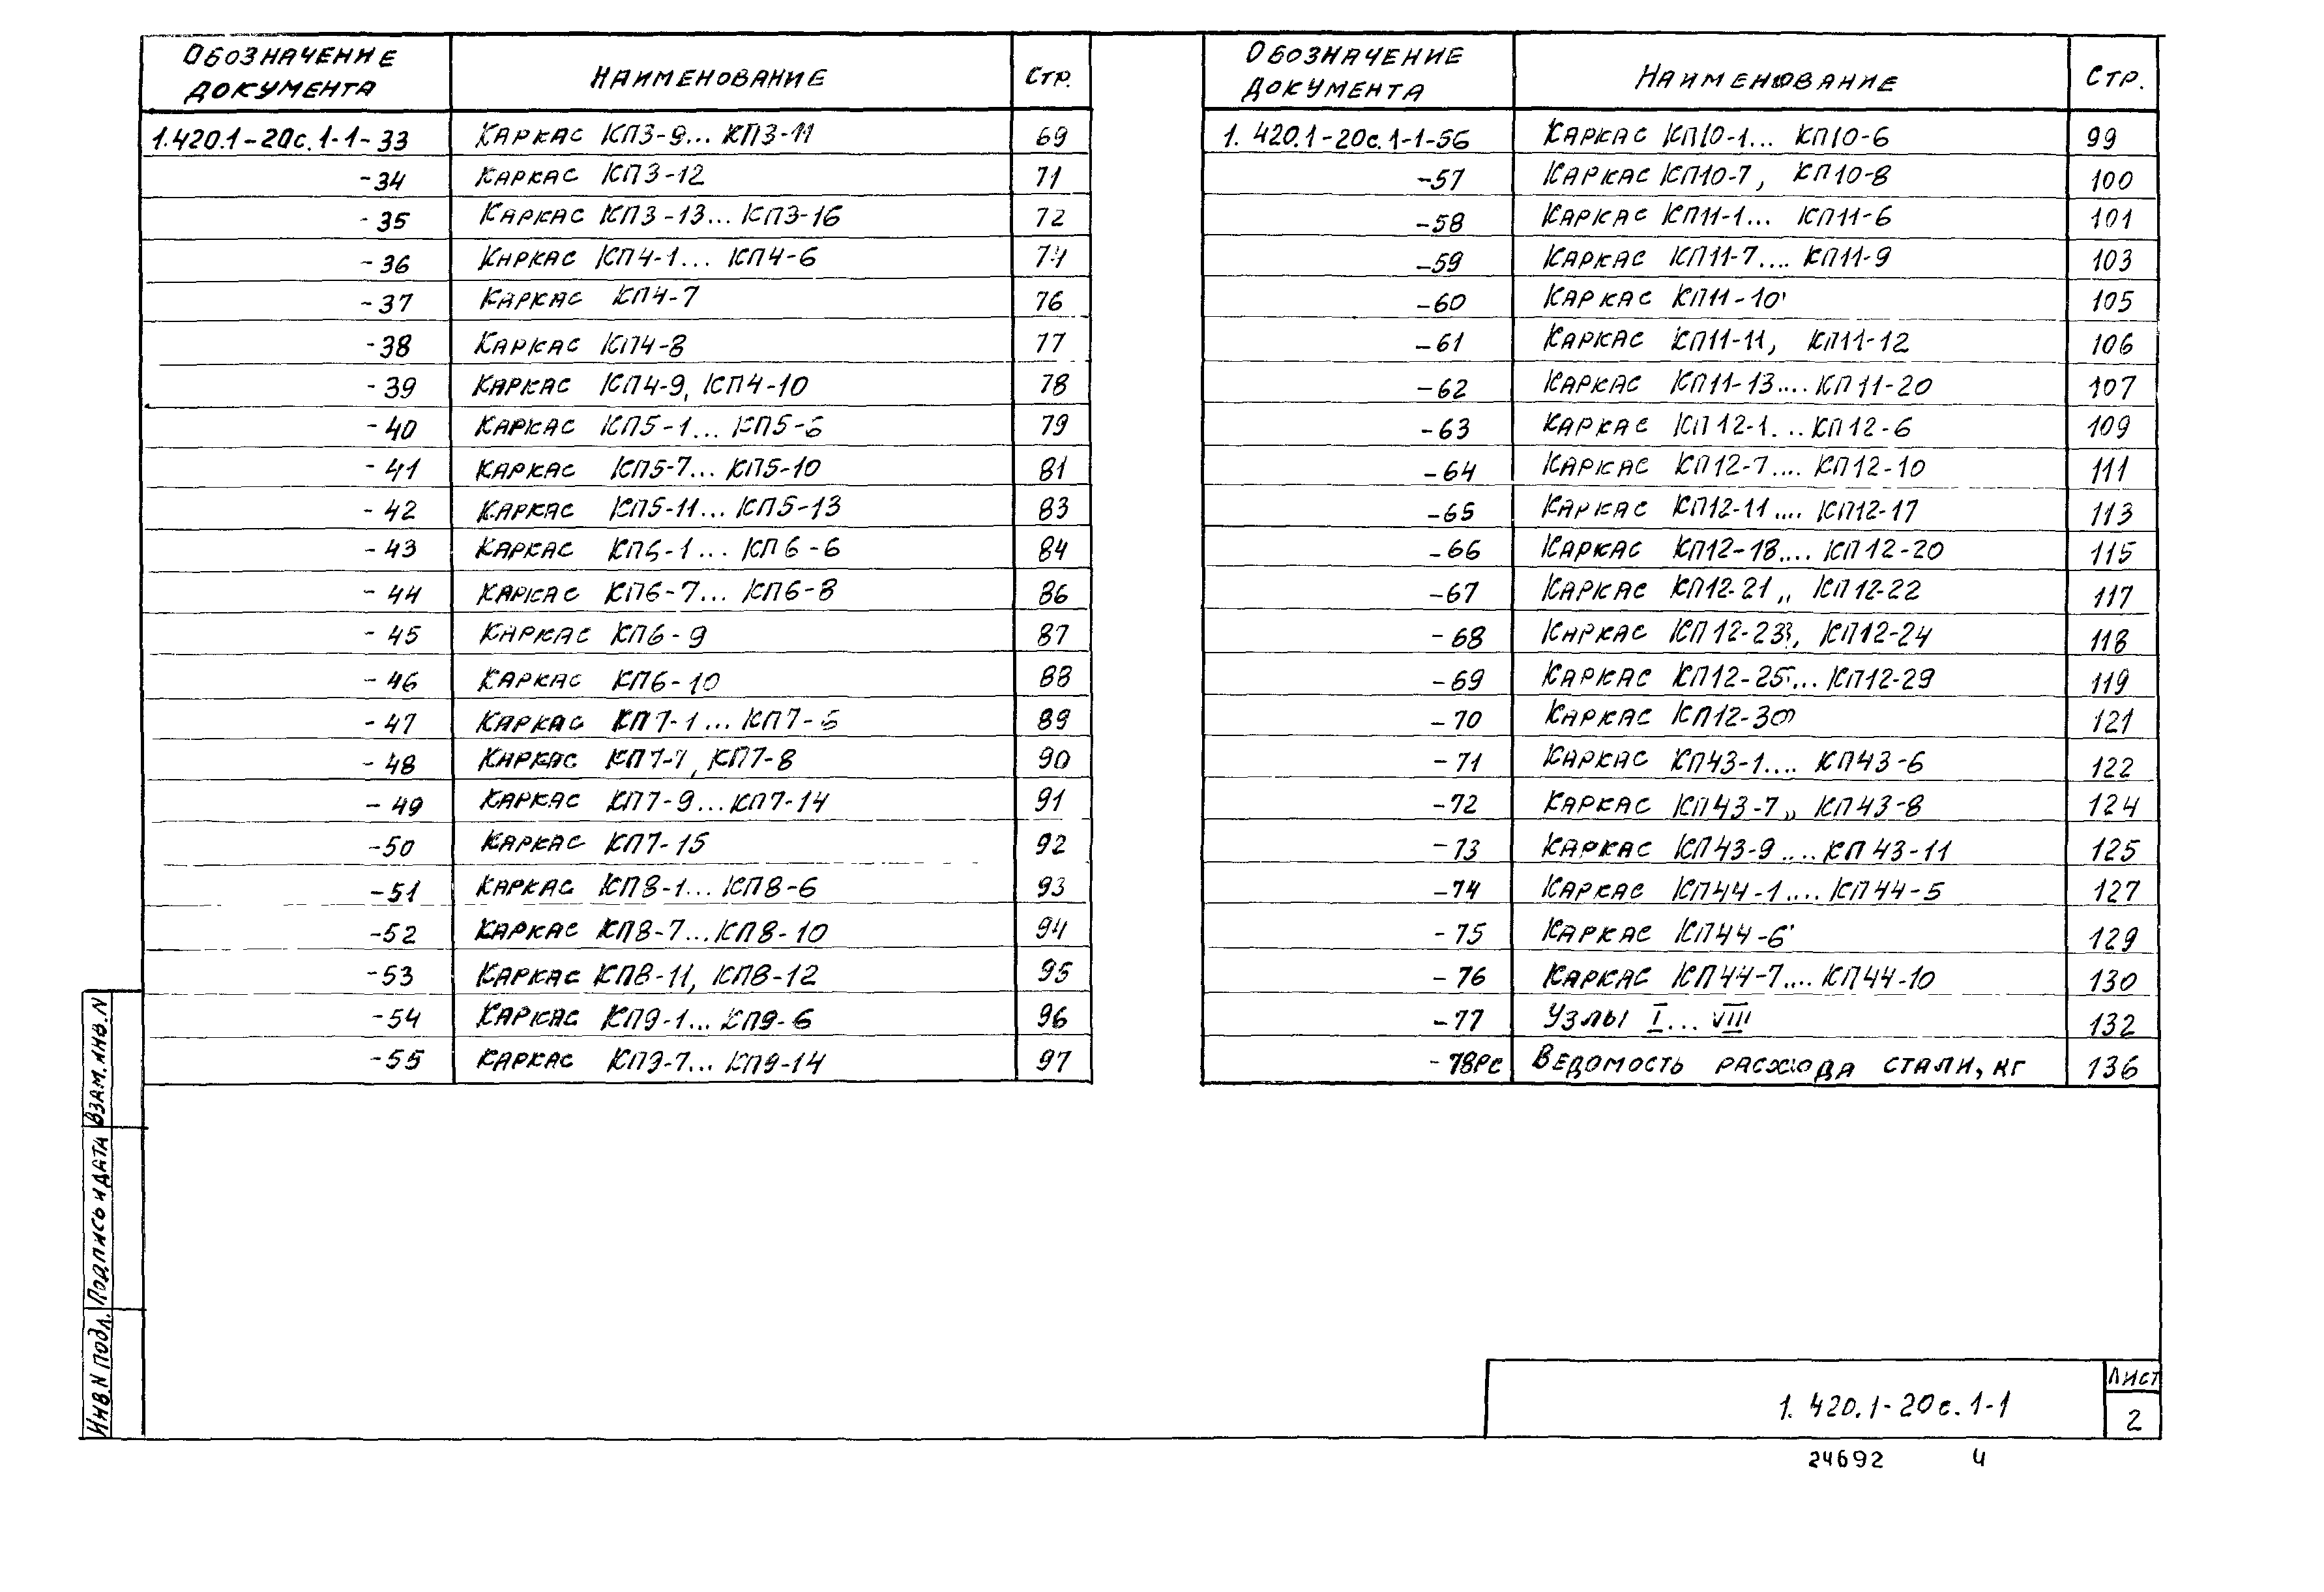 Обозначение документа Наименование Стр.
1.420.1-20с.1-1-33 Каркас КП3-9... КП3-11 69
-34 Каркас КП3-12 71
-35 Каркас КП3-13... КП3-16 72
-36 Каркас КП4-1... КП4-6 74
-37 Каркас КП4-7 76
-38 Каркас КП4-8 77
-39 Каркас КП4-9, КП4-10 78
-40 Каркас КП5-1... КП5-6 79
-41 Каркас КП5-7... КП5-10 81
-42 Каркас КП5-11... КП5-13 83
-43 Каркас КП6-1... КП6-6 84
-44 Каркас КП6-7... КП6-8 86
-45 Каркас КП6-9 87
-46 Каркас КП6-10 88
-47 Каркас КП7-1... КП7-6 89
-48 Каркас КП7-7, КП7-8 90
-49 Каркас КП7-9... КП7-14 91
-50 Каркас КП7-15 92
-51 Каркас КП8-1... КП8-6 93
-52 Каркас КП8-7... КП8-10 94
-53 Каркас КП8-11, КП8-12 95
-54 Каркас КП9-1... КП9-6 96
-55 Каркас КП9-7... КП9-14 97
Обозначение документа Наименование Стр.
1.420.1-20с.1-1-56 Каркас КП10-1... КП10-6 99
-57 Каркас КП10-7, КП10-8 100
-58 Каркас КП11-1... КП11-6 101
-59 Каркас КП11-7.... КП11-9 103
-60 Каркас КП11-10 105
-61 Каркас КП11-11, КП11-12 106
-62 Каркас КП11-13.... КП11-20 107
-63 Каркас КП12-1... КП12-6 109
-64 Каркас КП12-7.... КП12-10 111
-65 Каркас КП12-11.... КП12-17 113
-66 Каркас КП12-18.... КП12-20 115
-67 Каркас КП12-21,, КП12-22 117
-68 Каркас КП12-23, КП12-24 118
-69 Каркас КП12-25... КП12-29 119
-70 Каркас КП12-30 121
-71 Каркас КП43-1.... КП43-6 122
-72 Каркас КП43-7,, КП43-8 124
-73 Каркас КП43-9.... КП43-11 125
-74 Каркас КП44-1.... КП44-5 127
-75 Каркас КП44-6 129
-76 Каркас КП44-7.... КП44-10 130
-77 Узлы I... VIII 132
-78РС Ведомость расхода стали, кг 136
Инв.N подл. Подпись и дата Взам.инв.N
1.420.1-20с.1-1
Лист
2
24692 4